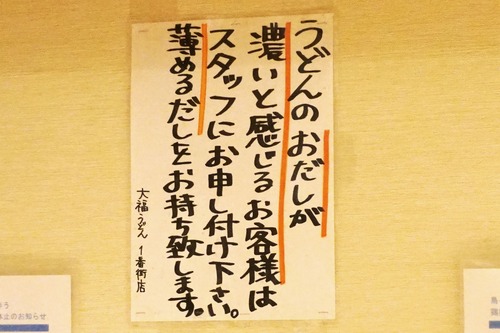 うどんのおだしが
濃いと感じるお客様は
スタッフにお申し付け下さい。
薄めるだしをお持ち致します。
大福うどん 1番街店
休止のお知らせ